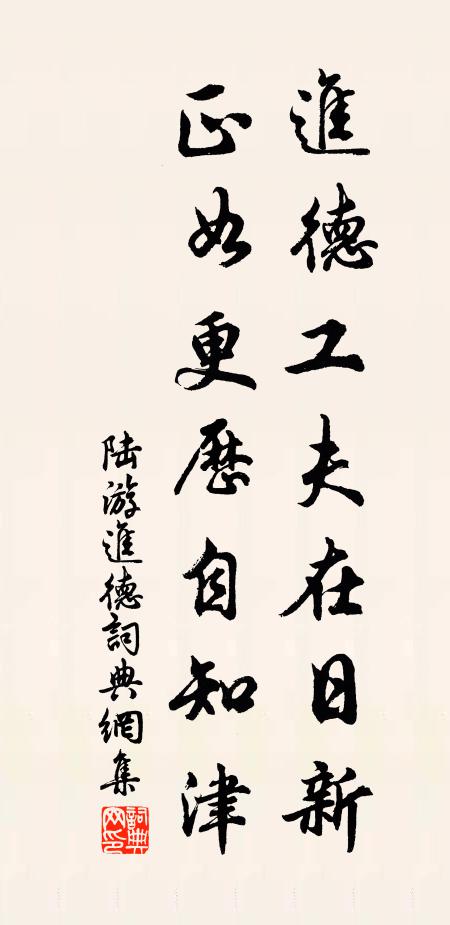 進德工夫在日新
正如更歷自知津
陸游進德詞典網集
詞典網印